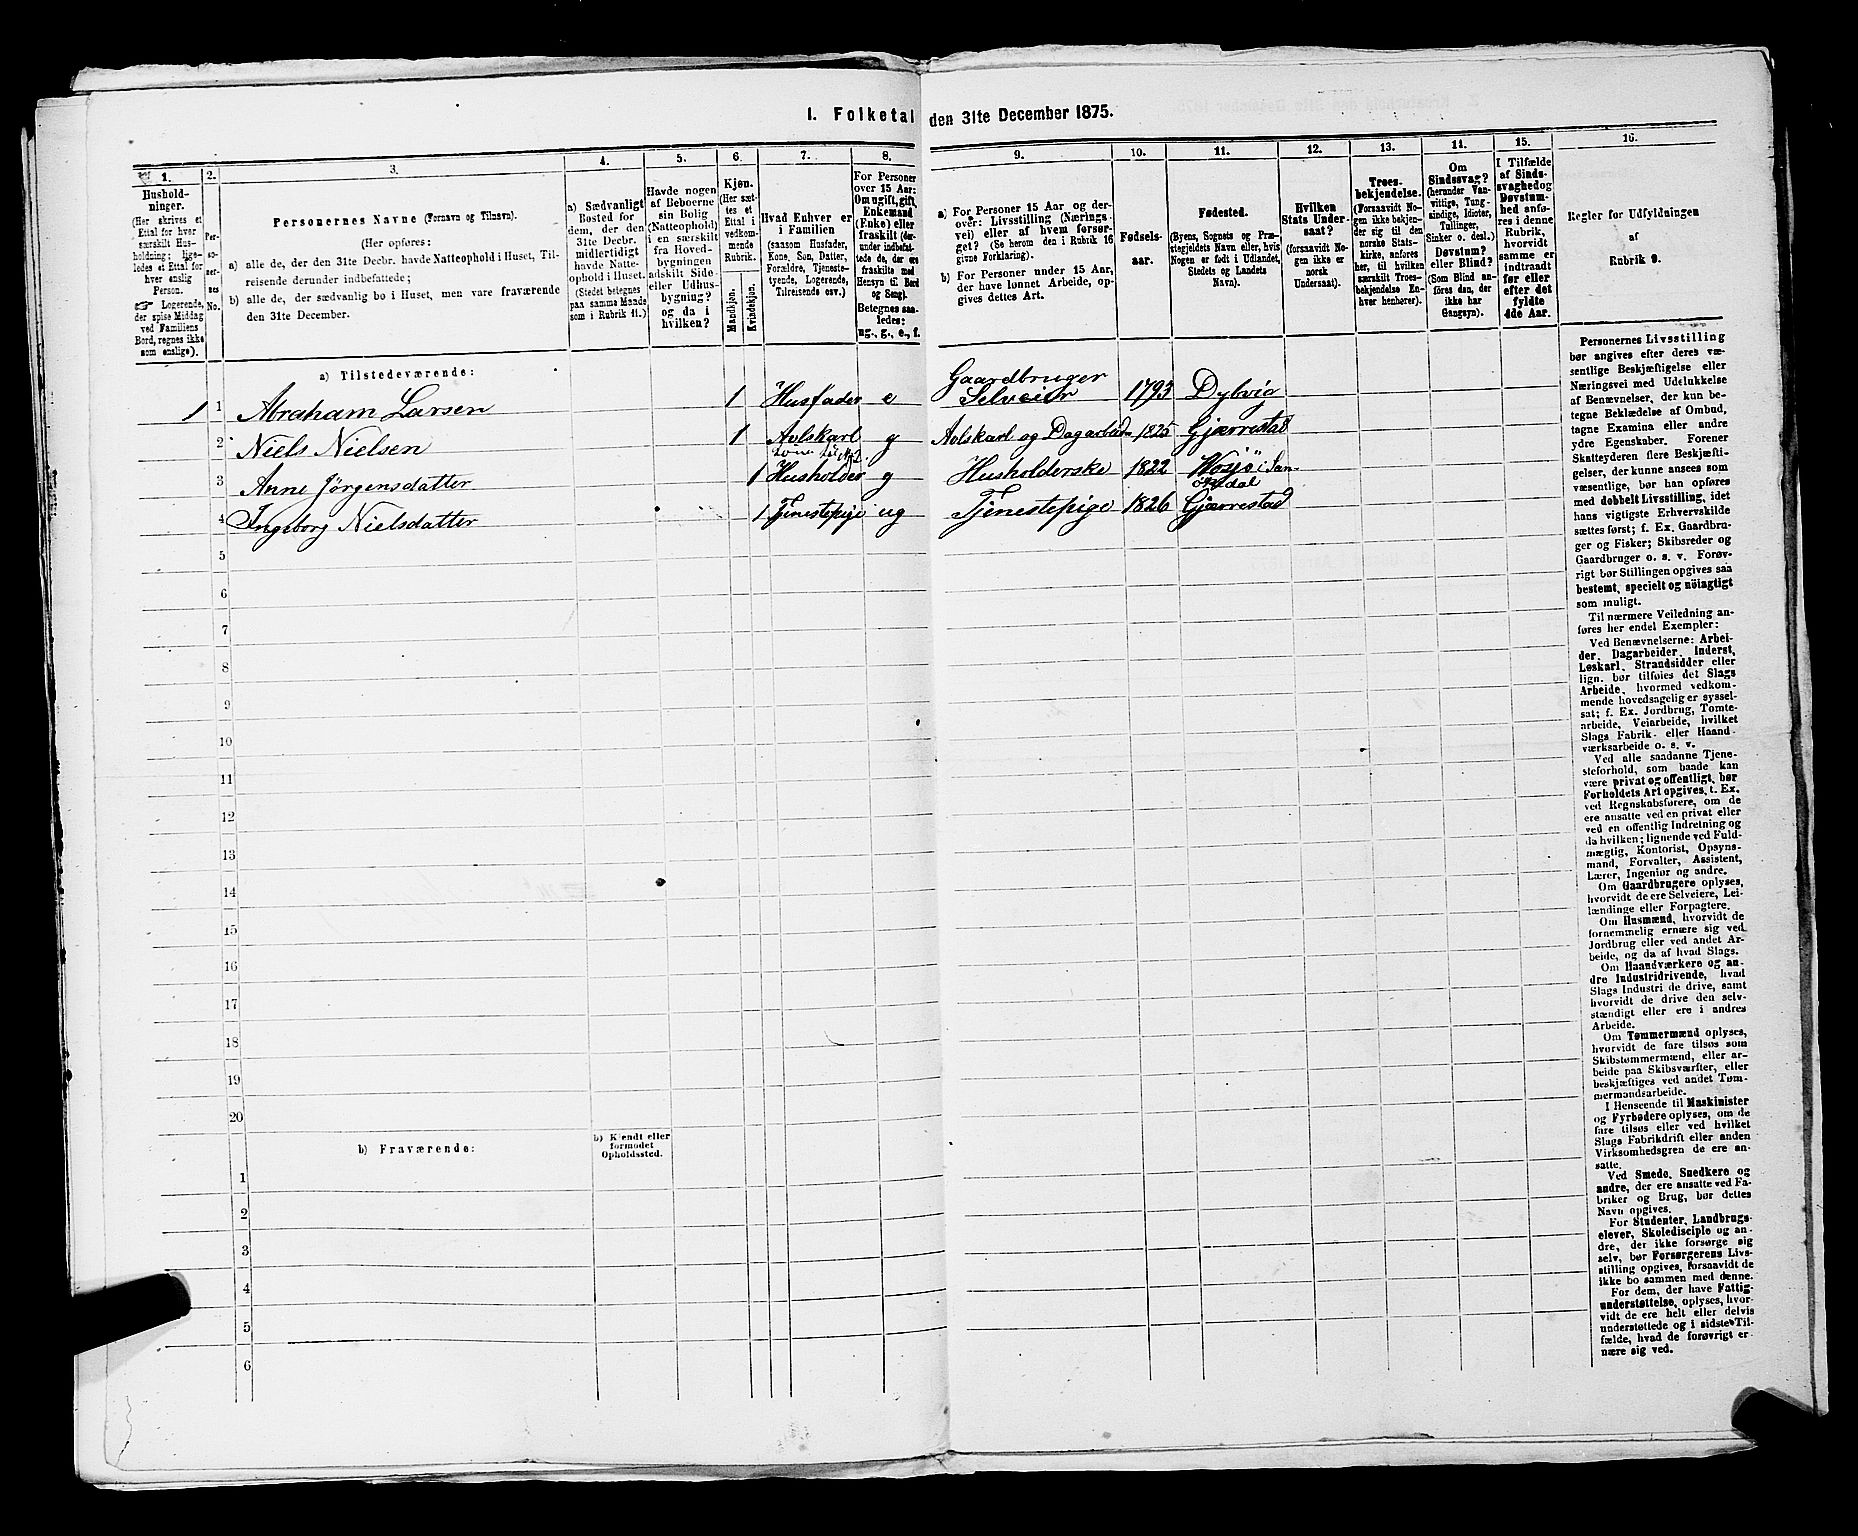 I. Folketal den 31te December 1875.
1. 2. 3. 4. 5. 6. 7. 8. 9. 10. 11. 12. 13. 14. 15. 16.
Hushold-
ninger.
(Her skrives et
Ettal for hver
særskilt Hus-
holdning; lige-
ledes et Ettal for
hver enslig
Person.
☞ Logerende,
der spise Middag
ved Familiens
Bord, regnes ikke
som enslige).
Per-
so-
ner-
nes
No.
Personernes Navne (Fornavn og Tilnavn).
(Her opføres:
a) alle de, der den 31te Decbr. havde Natteophold i Huset, Til-
reisende derunder indbefattede;
b) alle de, der sædvanlig bo i Huset, men vare fraværende
den 31te December.
a) Sædvanligt
Bosted for
dem, der den
31te Decbr.
midlertidigt
havde Natte-
ophold i Huset.
(Stedet betegnes
paa samme Maade
som i Rubrik 11.)
Havde nogen
af Beboerne
sin Bolig
(Natteophold)
i en særskilt
fra Hoved-
bygningen
adskilt Side-
eller Udhus-
bygning?
og da i
hvilken?
Kjøn.
(Her sæt-
tes et
Ettal i
vedkom-
mende
Rubrik.
Mandkjøn.
Kvindekjøn.
Hvad Enhver er
i Familien
(saasom Husfader,
Kone, Søn, Datter,
Forældre, Tjeneste-
tyende, Logerende,
Tilreisende osv.)
For Personer
over 15 Aar:
Om ugift, gift,
Enkemand
(Enke) eller
fraskilt (der-
under indbefat-
tede de, der ere
fraskilte med
Hensyn til Bord
og Seng).
Betegnes saa-
ledes:
ug., g., e., f.
a) For Personer 15 Aar og der-
over: Livsstilling (Nærings-
vei) eller af hvem forsør-
get? (Se herom den i Rubrik 16
givne Forklaring).
b) For Personer under 15 Aar,
der have lønnet Arbeide, op-
gives dettes Art.
Fødsels-
aar.
Fødested.
(Byens, Sognets og Præ-
stegjeldets Navn eller, hvis
Nogen er født i Udlandet,
Stedets og Landets
Navn).
Hvilken
Stats Under-
saat?
(forsaavidt No-
gen ikke er
norsk
Undersaat).
Troes-
bekjendelse.
(Forsaavidt No-
gen ikke bekjen-
der sig til den
norske Stats-
kirke, anføres
her, til hvilken
særskilt Troes-
bekjendelse En-
hver henhører).
Om
Sindssvag?
(herunder Van-
vittige, Tung-
sindige, Idioter,
Tullinger,
Sinker o. desl.)
Døvstum?
eller Blind?
(Som Blind an-
føres den, der
ikke har
Gangsyn).
I Tilfælde
af Sinds-
svaghed og
Døvstum-
hed anfø-
res i denne
Rubrik,
hvorvidt
samme er
indtraadt
før eller
efter det
fyldte
4de Aar.
Regler for Udfyldningen
af
Rubrik 9.
a) Tilstedeværende:
1 1 Abraham Larsen 1 Husfader e Gaardbruger Selveier 1793 Dybvig
2 Niels Nielsen 1 Avlskarl g Avlskarl og Dagarbeider 1825 Gjærrestad
3 Anne Jörgensdatter 1 Husholder g Husholderske 1822
4 Ingeborg Nielsdatter 1 Tjenestepige ug Tjenestepige 1826 Gjærrestad
5
6
7
8
9
10
11
12
13
14
15
16
17
18
19
20
b) Fraværende:
b) Kjendt eller
formodet
Opholdssted.
1
2
3
4
5
6
Personernes Livsstilling
bør angives efter deres væ-
sentlige Beskjæftigelse eller
Næringsvei med Udelukkelse
af Benævnelser, der kun be-
tegne Beklædelse af Ombud,
tagne Examina eller andre
ydre Egenskaber. Forener
Skatteyderen flere Beskjæfti-
gelser, der kunne ansees som
væsentlige, bør han opføres
med dobbelt Livsstilling, idet
hans vigtigste Erhvervskilde
sættes først; f. Ex. Gaardbru-
ger og Fisker; Skibsreder og
Gaardbruger o. s. v. Forøv-
rigt bør Stillingen opgives saa
bestemt, specielt og nöiagtigt
som muligt.
Til nærmere Veiledning an-
føres her endel Exempler:
Ved Benævnelserne: Arbei-
der, Dagarbeider, Inderst,
Løskarl, Strandsidder eller
lign. bør tilføies det Slags
Arbeide, hvormed vedkom-
mende hovedsagelig er syssel-
sat; f. Ex. Jordbrug, Tomte-
arbeide, Veiarbeide, hvilket
Slags Fabrik- eller Haand-
værksarbeide o. s. v.
Ved alle saadanne Tjene-
steforhold, som baade kan
være privat og offentligt, bør
Forholdets Art opgives, t. Ex.
ved Regnskabsførere, om de
ere ansatte ved en privat eller
ved en offentlig Indretning og
da hvilken; lignende ved Fuld-
mægtig, Kontorist, Opsyns-
mand, Forvalter, Assistent,
Lærer, Ingeniør og andre.
Om Gaardbrugere oplyses,
hvorvidt de ere Selveiere, Lei-
lændinge eller Forpagtere.
Om Husmænd, hvorvidt de
fornemmelig ernære sig ved
Jordbrug eller ved andet Ar-
beide, og da af hvad Slags.
Om Haandværkere og an-
dre Industridrivende, hvad
Slags Industri de drive, samt
hvorvidt de drive den selv-
stændigt eller ere i andres
Arbeide.
Om Tømmermænd oplyses,
hvorvidt de fare tilsøs som
Skibstømmermænd, eller ar-
beide paa Skibsværfter, eller
beskjæftiges ved andet Tøm-
mermandsarbeide.
I Henseende til Maskinister
og Fyrbødere oplyses, om de
fare tilsøs eller ved hvilket
Slags Fabrikdrift eller anden
Virksomhedsgren de ere an-
satte.
Ved Smede, Snedkere og
andre, der ere ansatte ved Fa-
briker og Brug, bør dettes
Navn opgives.
For Studenter, Landbrugs-
elever, Skoledisciple og an-
dre, der ikke forsørge sig
selv, bør Forsørgerens Livs-
stilling opgives, forsaavidt de
ikke bo sammen med denne.
For dem, der have Fattig-
understøttelse, oplyses, hvor-
vidt de ere helt eller delvis
understøttede og i sidste Til-
fælde, hvad de forøvrigt er-
nære sig ved.